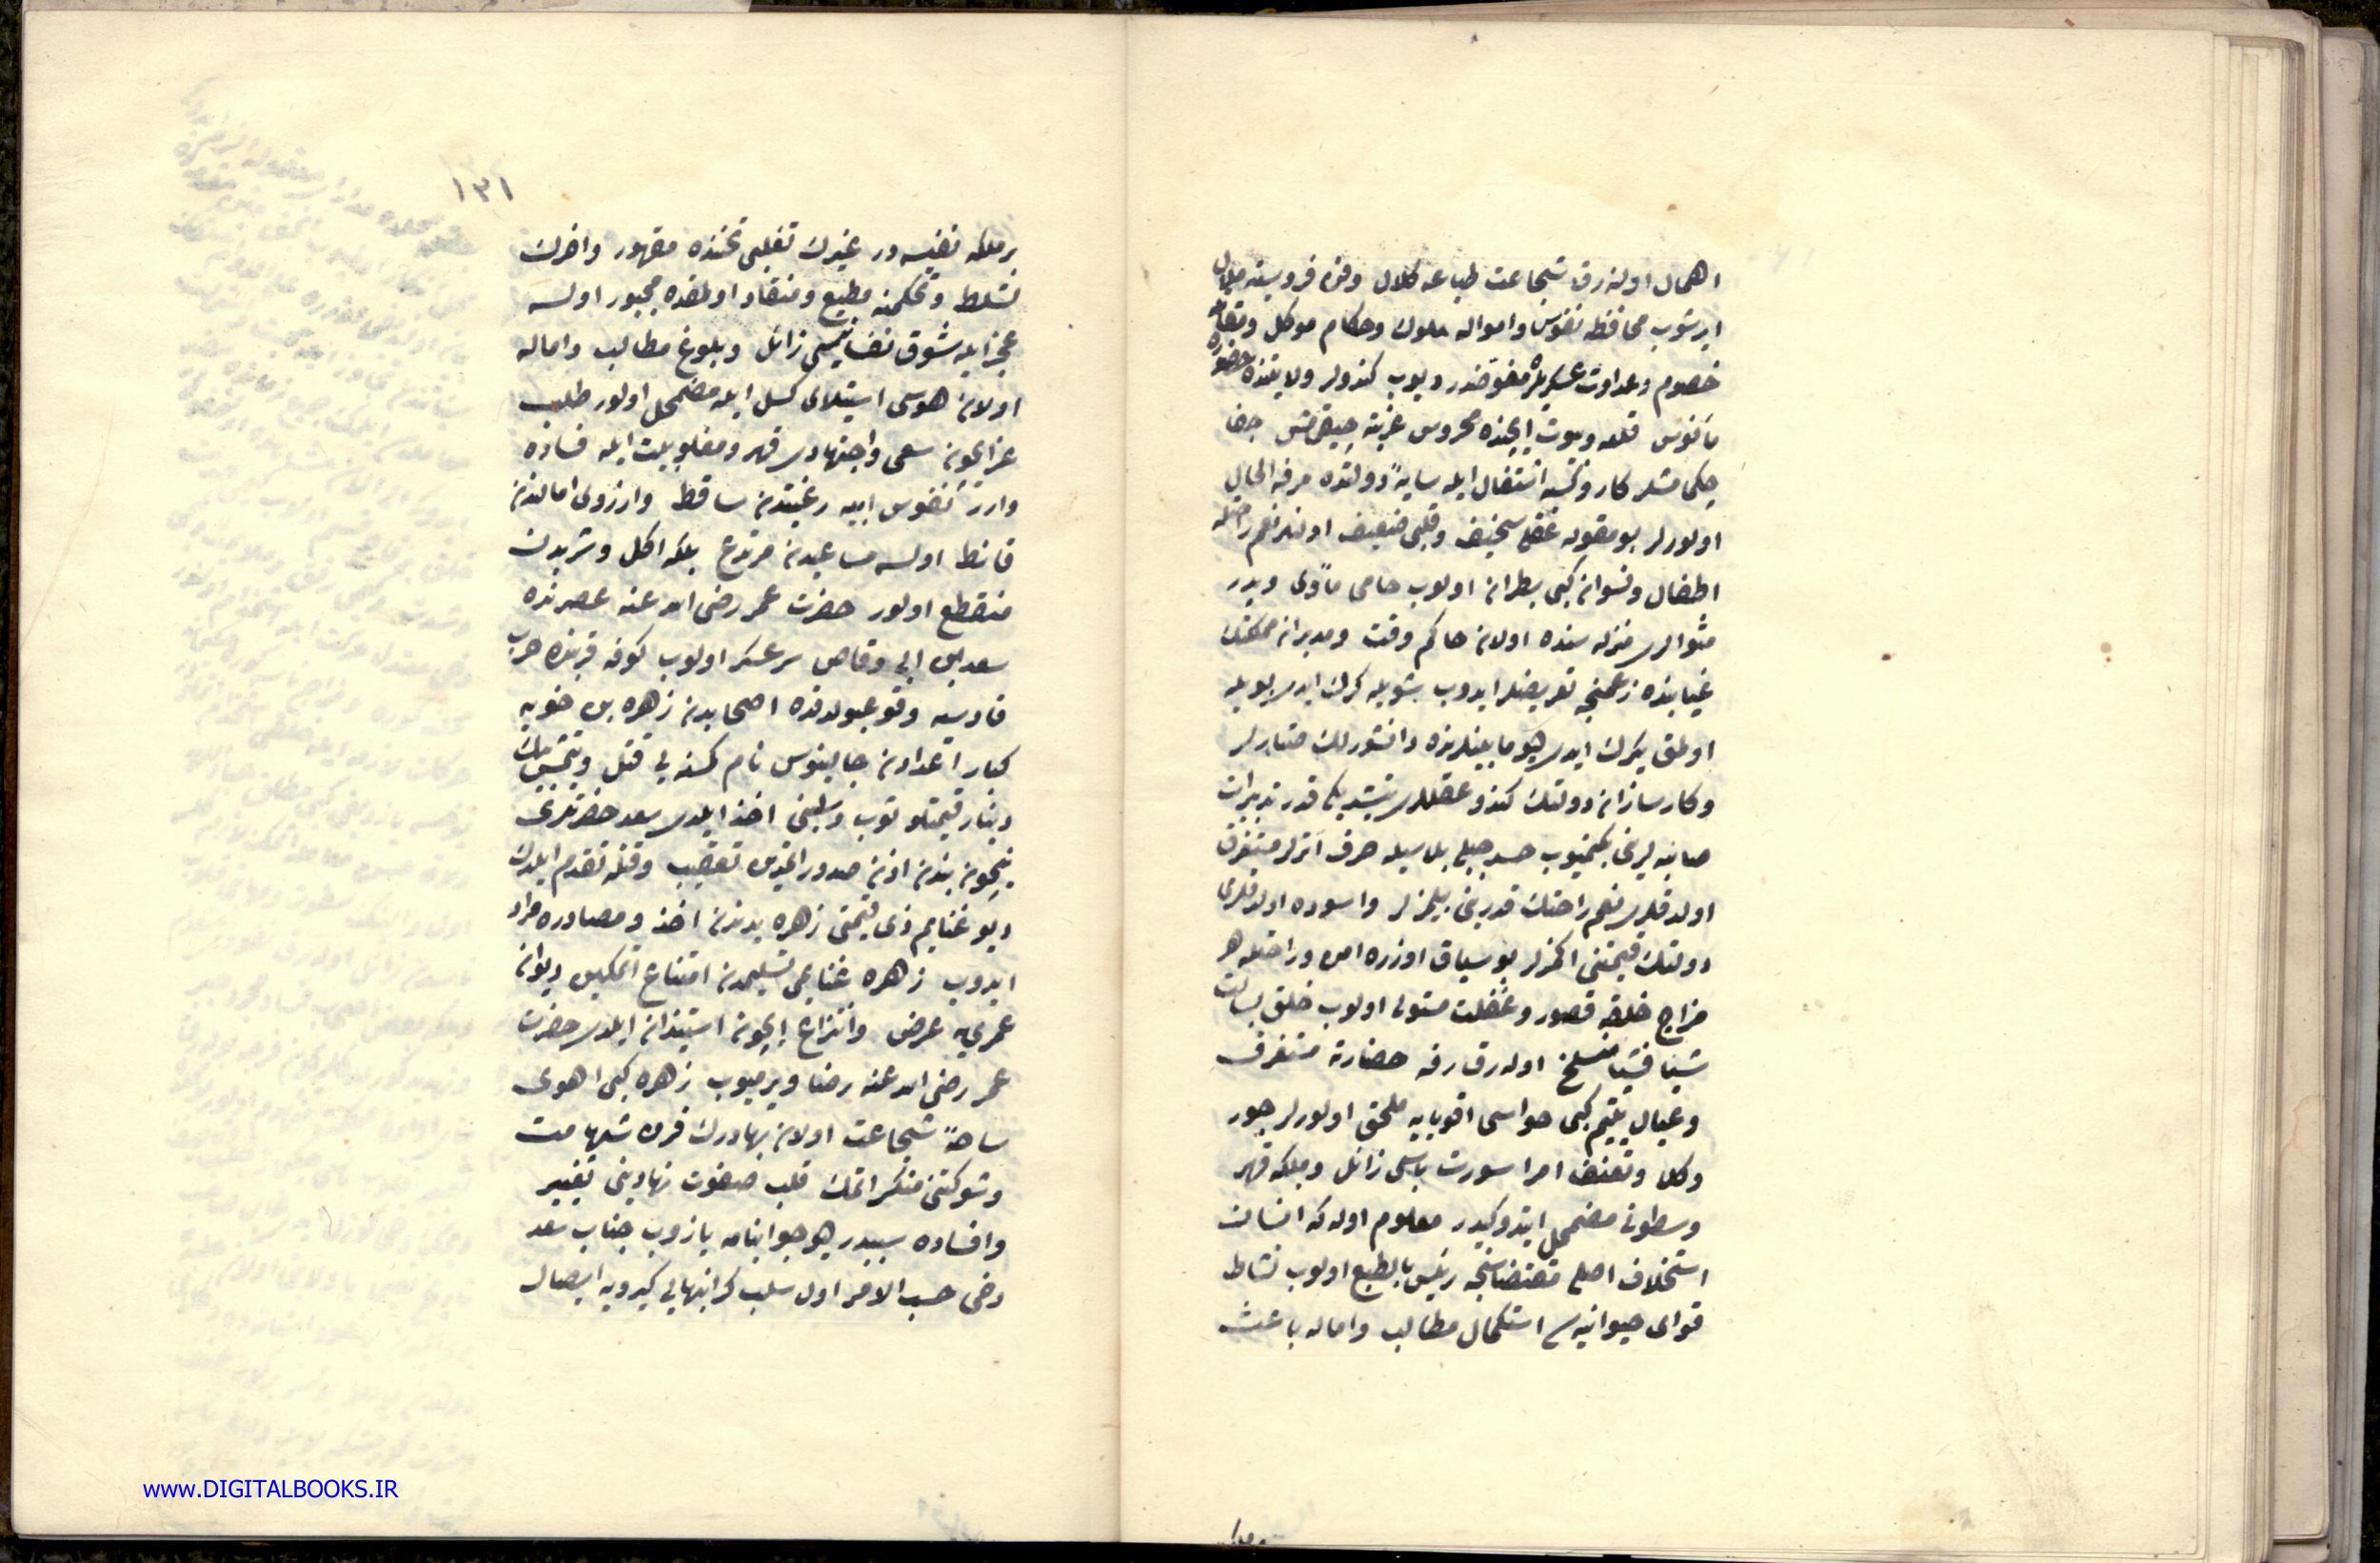 اهمال اولنه رق شجاعت طباعه كلال وفن فروسيته ملال
ايرشوب محافظه نفوس و امواله ملوك وحكام موكل و
خصوم وعداوت عسكريلره مفوضدر ديوب كندولر ولايتنده
مأنوس قلعه وبيوت ايچنده محروس غربته چيقمامش جفا
چكمامشلر كار وكسبه اشتغال ايله سايهٔ دولتده مرفه الحال
اولورلر بو مقوله عقلى سخيف وقلبى ضعيف اولنلر
اطفال ونسوان كبى بطران اولوب حامى مأوى و پدر
مثوالرى منزله سنده اولان حاكم وقت ومدبران مملكتك
غيابنده زعمنجه تعريضلر ايدوب شويله كرك ايدى بويله
اولمق كرك ايدى هپ مابينلرنده دانشورلك صتارلر
وكارسازان دولتك كندو عقللرى يتشديكى قدر تدبيرات
صائبه لرينى بكنميوب حسد جبلى بلاسيله حرف آتارلر مستغرق
اولدقلرى نعم راحتك قدرينى بيلمزلر واسوده اولدقلرى
دولتك قيمتنى اكمزلر بو سياق اوزره امن وراحتله هر
مزاج خلقه قصور وغفلت مستولى اولوب خلق بسالت
شيئا فشيئا منسلخ اوله رق رفه حضارته مستغرق
وعيال يتيم كبى حواسى اقويايه ملحق اولورلر جور
وكلا وتعنف امرا سورت باسى زائل وملكه قهر
وسطوتى مضمحل ايتدوكيدر معلوم اوله كه انسان
استخلاف اصلى مقتضاسنجه رئيس بالطبع اولوب نشاط
قواى حيوانيه سى استكمال مطالب واماله باعث
١٣١
بر ملكه نفيسه در غيرك تغلبى تحتنده مقهور واخرك
تسلط وتحكمنه مطيع ومنقاد اولمقده مجبور اولسه
عجز ايله شوق نفسانيسى زائل وبلوغ مطالب واماله
اولان هوسى استيلاى كسل ايله مضمحل اولور طلب
عز ايچون سعى واجتهادى قهر ومغلوبيت ايله فساده
وارر نفوس ابيه رغبتدن ساقط وارزوى امالدن
قانط اولسه مساعيدن مرتدع بلكه اكل وشربدن
منقطع اولور حضرت عمر رضى الله عنه عصرنده
سعد بن ابى وقاص سرعسكر اولوب كوفه قربنده حرب
قادسيه وقوعبولدقده اصحابدن زهره بن خويه
كبار اعدادن جالينوس نام كسنه يى قتل ويتمش بيك
دينار قيمتلو ثوب وسلبنى اخذ ايلدى سعد حضرتلرى
نيچون بندن اذن صدور ايتمدن تعقيب وقتله تقدم ايلدك
ديو غنايم ذى قيمتى زهره يدندن اخذ و مصادره مراد
ايدوب زهره غنايمى تسليمدن امتناع اتمكين ديوان
عمريه عرض وانتزاع ايچون استيذان ايلدى حضرت
عمر رضى الله عنه رضا ويرميوب زهره كبى اهوى
ساحهٔ شجاعت اولان بهادرك قرن شهامت
وشوكتنى منكسر اتمك قلب صفوت نهادينى تغيير
وافساده سببدر ديو جوابنامه يازوب جناب سعد
دخى حسب الامر اول سلب كرانبهايى كيرويه ايصال
www.DIGITALBOOKS.IR